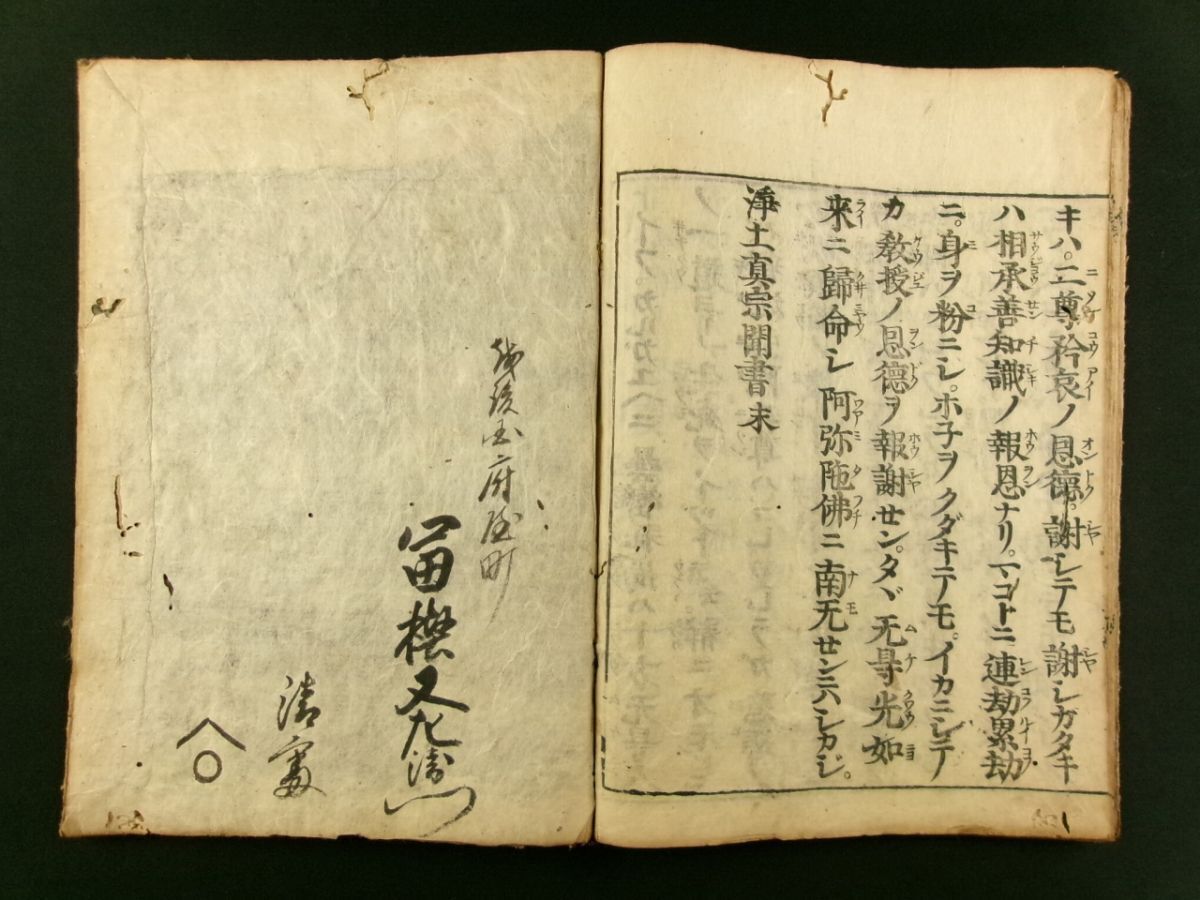 キハ。二尊矜哀ノ恩德。謝シテモ謝シカタキ
ハ相承善知識ノ報恩ナリ。マコトニ連劫累劫
ニ。身ヲ粉ニシ。ホ子ヲクダキテモ。イカニシテ
カ教授ノ恩德ヲ報謝せン。タヾ无㝵光如
来ニ歸命シ阿弥陁佛ニ南无せンニハシカジ。
淨土真宗聞書末
府 町
冨樫又左衛門
清